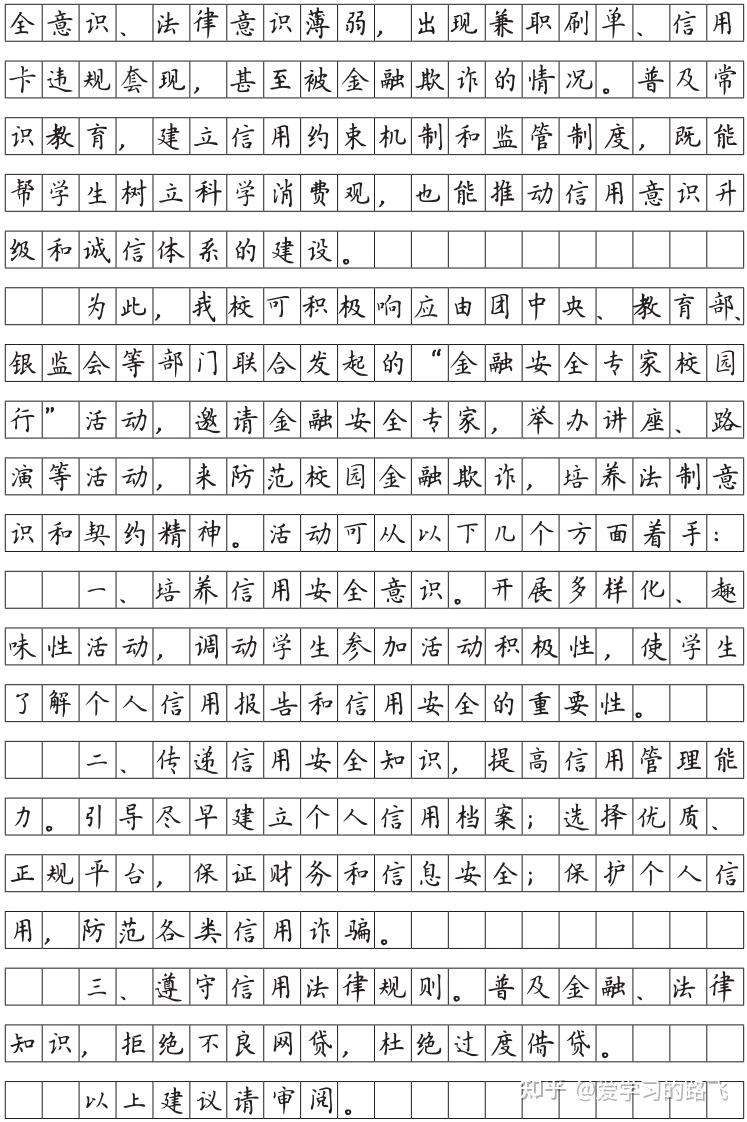 全意识、法律意识薄弱，出现兼职刷单、信用
卡违规套现，甚至被金融欺诈的情况。普及常
识教育，建立信用约束机制和监管制度，既能
帮学生树立科学消费观，也能推动信用意识升
级和诚信体系的建设。
为此，我校可积极响应由团中央、教育部、
银监会等部门联合发起的“金融安全专家校园
行”活动，邀请金融安全专家，举办讲座、路
演等活动，来防范校园金融欺诈，培养法制意
识和契约精神。活动可从以下几个方面着手：
一、培养信用安全意识。开展多样化、趣
味性活动，调动学生参加活动积极性，使学生
了解个人信用报告和信用安全的重要性。
二、传递信用安全知识，提高信用管理能
力。引导尽早建立个人信用档案；选择优质、
正规平台，保证财务和信息安全；保护个人信
用，防范各类信用诈骗。
三、遵守信用法律规则。普及金融、法律
知识，拒绝不良网贷，杜绝过度借贷。
以上建议请审阅。
知乎 @爱学习的路飞